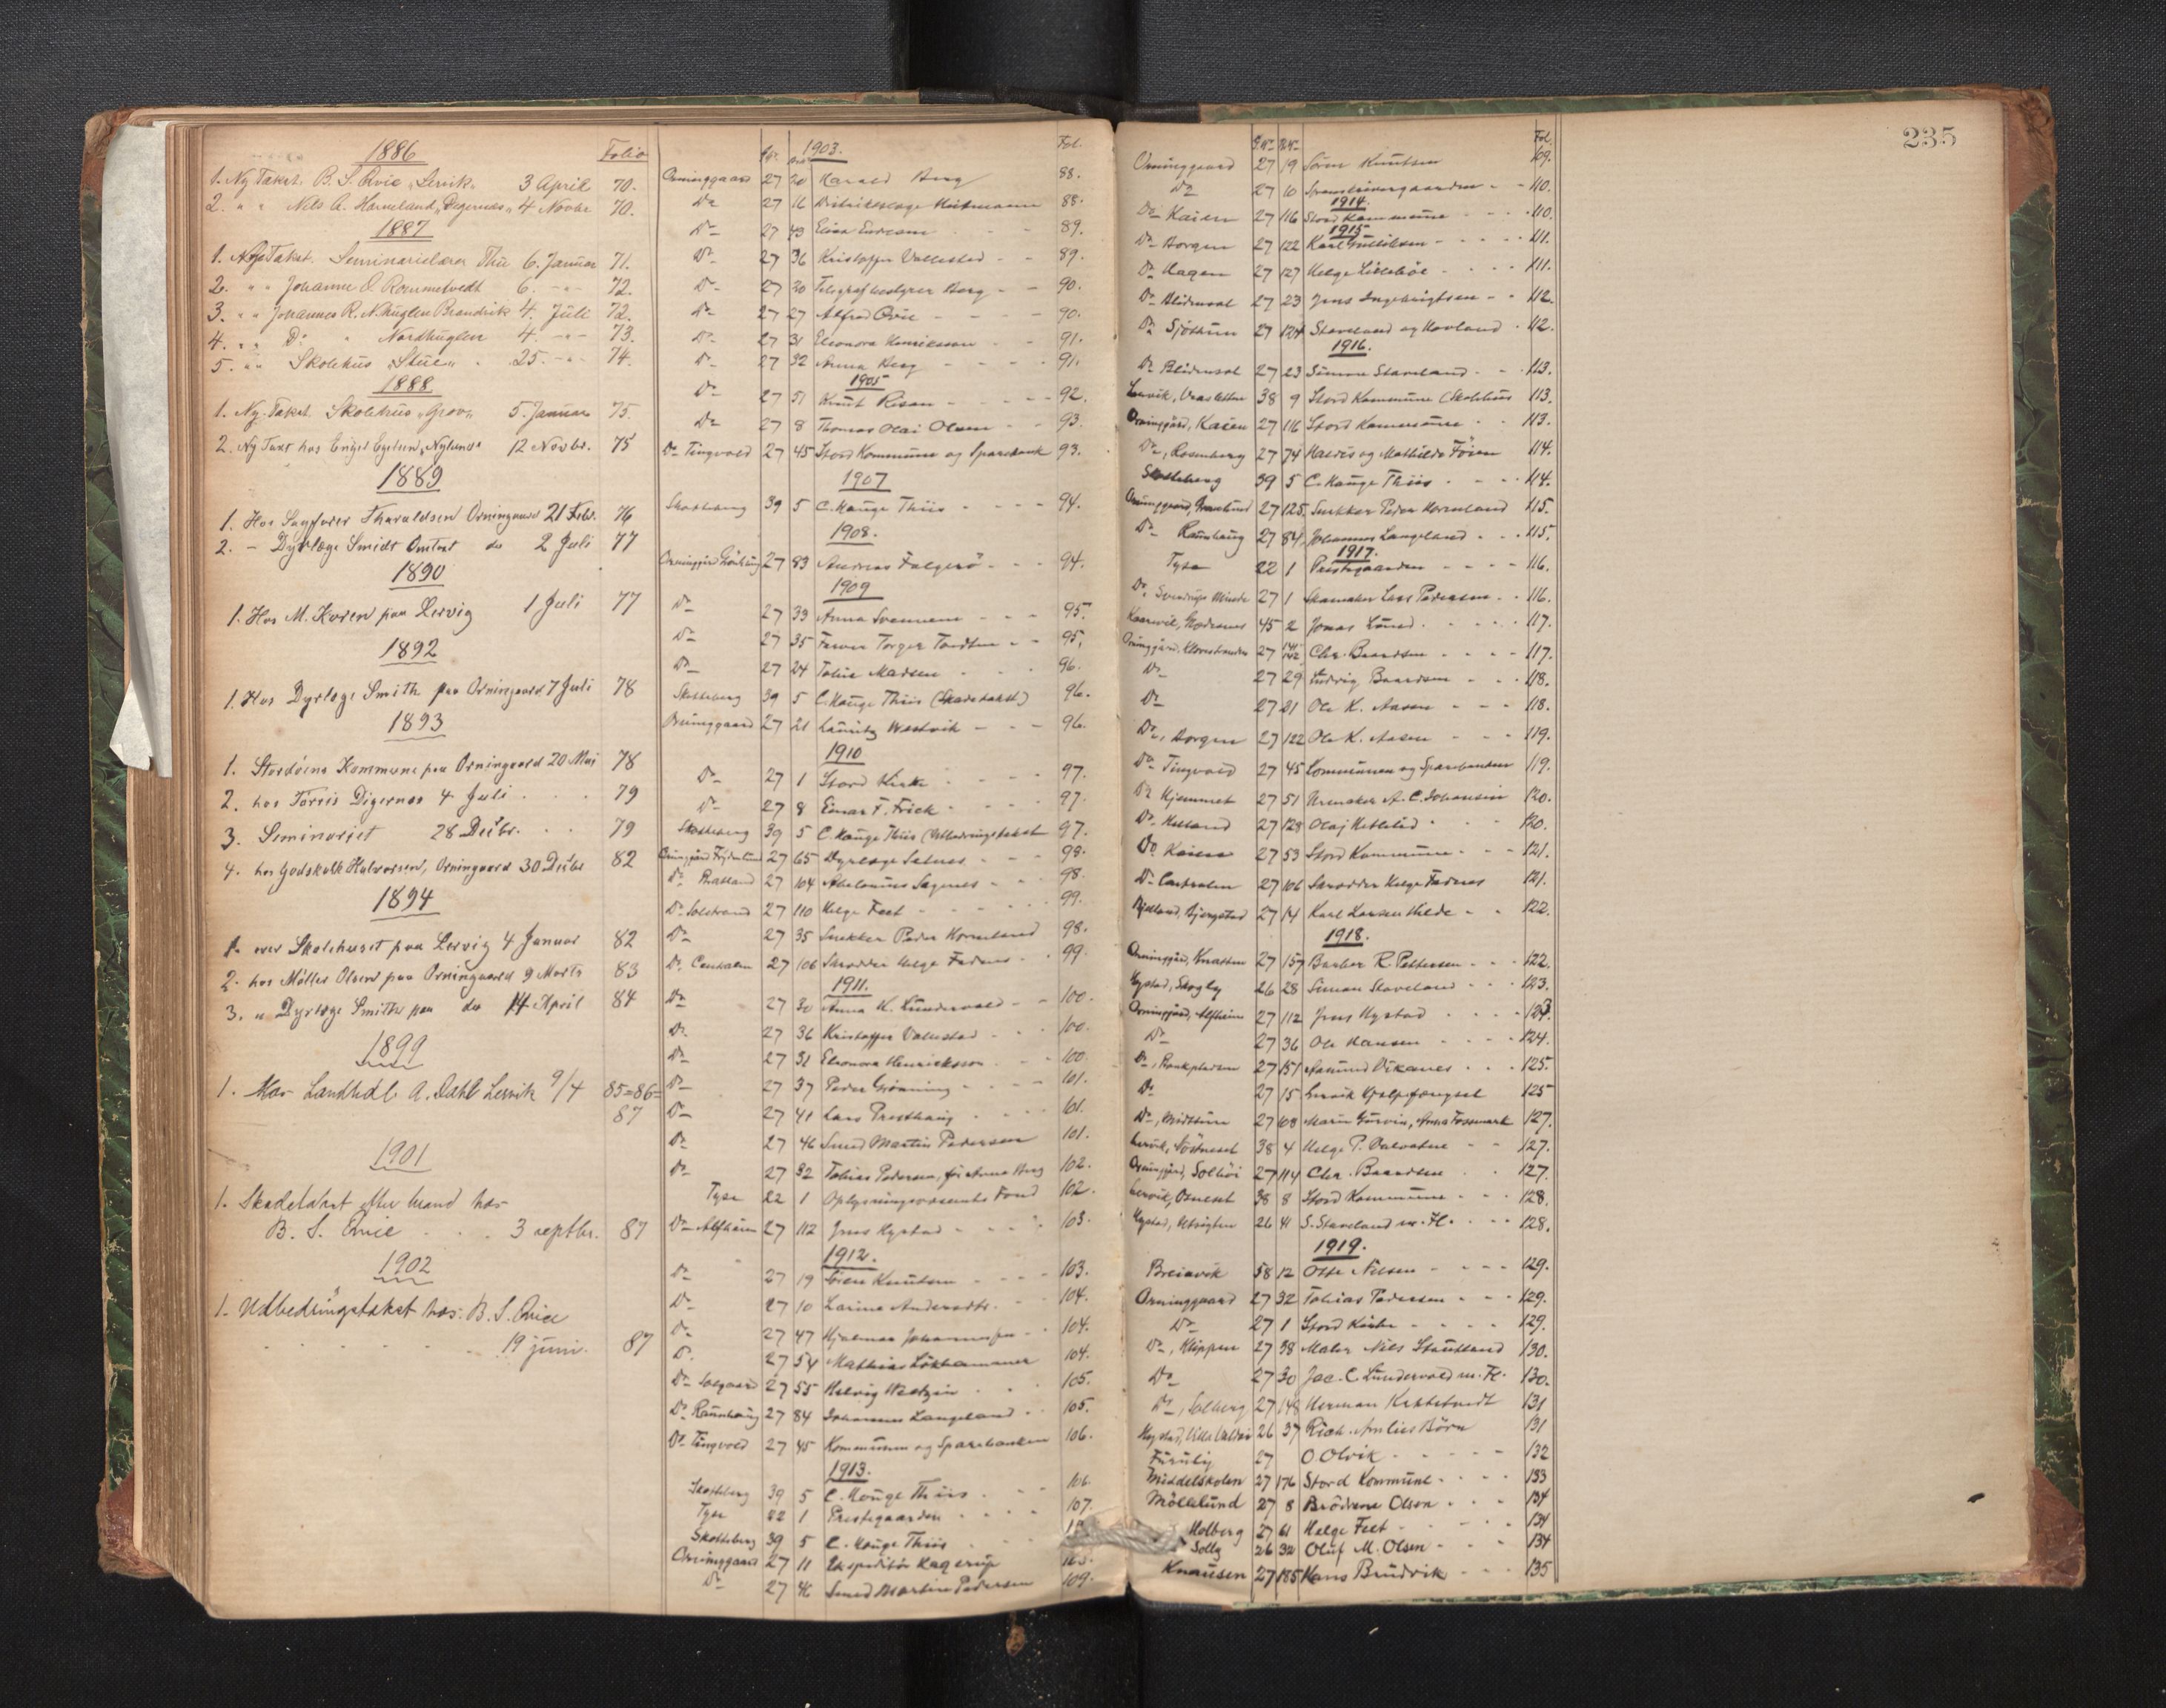 1886 Folio
1. Ny Takst. B. S. Qvie „Lervik„ 3 April 70.
2. " " Nils A. Horneland „Digernæs„ 4 Novbr 70.
1887
1. Nye Takst. Seminarielærer Thu 6. Januar 71.
2. " " Johanne O. Rommetvedt 6. -"- 72.
3. " " Johannes R. N.huglen Brandvik 4. Juli 72.
4. " " Do " Nordhuglen 4. -"- 73.
5. " " Skolehus „Stue„ 25. -"- 74.
1888
1. Ny Takst Skolehus „Grov„ 5. Januar 75.
2. Ny Taxt hos Engel Egeland, Nylund 12 Novbr. 75
1889
1. Hos Sagfører Tharaldsen Orningaard 21 Febr. 76
2. - Dyrlæge Smidt Omtaxt do 2 Juli 77
1890
1. Hos M. Koren paa Lervig 1 Juli 77
1892
1. Hos Dyrlæge Smith paa Orningaard 7 Juli 78
1893
1. Stordøens Kommune paa Orningaard 20 Mai 78
2. hos Tørris Digernes 4 Juli . . . 79
3. Seminariet 28 Decbr. . . 79
4. hos Godskalk Halvorsen, Orningaard 30 Decbr 82
1894
1. over Skolehuset paa Lervig 4 Januar 82
2. hos Møller Olsen paa Orningaard 9 Marts 83
3. " Dyrlæge Smith paa do 14 April 84
1899
1. Hos Landhdl. A. Dahl Lervik 9/4 85=86=
87
1901
1. Skadetakst efter brand hos
B. S. Qvie . . . 3 septbr. 87
1902
1. Udbedringstakst hos: B. S. Qvie
19 juni. 87
1903. Fol.
Orninggaard 27 20 Harald Berg 88.
Do 27 16 Distriktslæge Heitmann 88.
Do 27 49 Elina Endresen 89.
Do 27 36 Kristoffer Vallestad - - 89.
Do 27 20 Telegrafbestyrer Berg - - 90.
Do 27 27 Alfred Qvie - - - - 90.
Do 27 31 Eleonora Henriksen - - 91.
Do 27 32 Anna Berg - - - - 91.
1905
Do 27 51 Knut Risan - - - - 92.
Do 27 8 Thomas Olai Olsen - - 93.
Do Tingvold 27 45 Stord Kommune og Sparebank 93.
1907
Skotteberg 39 5 C. Hauge Thiis - - - - 94.
1908.
Orninggård 27 83 Andreas Falgerö - - - 94.
1909
Do 27 33 Anna Svennem - - - 95.
Do 27 35 Farver Torger Tordtsen - - 95.
Do 27 24 Tobia Madsen - - 96.
Skotteberg 39 5 C. Hauge Thiis (Skadetakst) 96.
Orninggaard 27 21 Lauritz Westvik - - - 96.
1910
Do 27 1 Stord Kirke - - - - 97.
Do 27 8 Einar F. Frick - - - 97.
Skotteberg 39 5 C. Hauge Thiis (Utbedringstakst 97.
Orninggård 27 65 Dyrlæge Selnes - - - 98.
Do Bratland 27 104 Abelonius Sagenes - - 98.
Do Solstrand 27 110 Helge Feet - - - - 99.
Do 27 35 Snekker Peder Horneland 98.
Do Cenholm 27 106 Skrædder Helge Fadnes - - 99
1911.
Do 27 30 Anna K. Lundervold - - 100.
Do 27 36 Kristoffer Vallestad - - 100.
Do 27 31 Eleonora Henriksson - - 100.
Do 27 37 Peder Grönning - - - 101.
Do 27 41 Lars Presthaug - - - 101.
Do 27 46 Smed Martin Pedersen 101.
Do 27 32 Tobias Pedersen, før Anna Berg 102.
Tyse 22 1 Oplysningsvæsenets Fond 102.
Do Alfheim 27 112 Jens Hystad - - - 103.
1912.
Do 27 19 Sören Knutsen - - - - 103.
Do 27 10 Larine Andersdtr. - 104.
Do 27 47 Hjalmar Johannessen - - 104.
Do 27 54 Mathias Lökhammer 104.
Do Solgaard 27 55 Helvig Westvin - - 105.
Do Raunhaug 27 84 Johannes Langeland - - 105.
Do Tingvold 27 45 Kommunen og Sparebanken 106.
1913.
Skotteberg 39 5 C. Hauge Thiis - - 106.
Tyse 22 1 Prestegaarden - - - - 107.
Skotteberg 39 5 C. Hauge Thiis
Orninggaard 27 11 Expeditør Kagerup
Do 27 46 Smed Martin Pedersen 109.
235
G.Nr B.Nr Fol.
Orninggaard 27 19 Sören Knutsen 109.
Do 27 10 Sorenskrivergaarden - - 110.
1914.
Do Kaien 27 116 Stord Kommune - - - 110.
1915
Do Borgen 27 122 Karl Gulliksen - - - - 111.
Do Hagen 27 127 Helge Lillebøe - - - - 111.
Do Blidensol 27 23 Jens Ingebrigtsen - - 112.
Do Sjötun 27 124 Staveland og Hovland - 112.
1916.
Do Blidensol 27 23 Simon Staveland - - 113.
Lervik, 38 9 Stord Kommune (Skolehus 113.
Orninggård, Kaien 27 116 Stord Kommune - - 113.
Do, Rosenberg 27 74 Haldis og Mathilde Föien 114.
Skotteberg 39 5 C. Hauge Thiis - - - 114.
Orninggaard, 27 125 Snekker Peder Horneland 115.
Do Raunhaug 27 84 Johannes Langeland - - - 115.
1917.
Tyse 22 1 Prestegaarden - - - - 116.
Do Sverdrups Minde 27 1 Skomaker Lars Pedersen - - 116.
45 2 Jonas Lund - - - - 117.
Orninggård, 27 141 142 Chr. Baardsen - - - - 117.
Do 27 29 Ludvig Baardsen - - - 118.
Do 27 21 Ole K. Aasen - - - 118.
Do, Borgen 27 122 Ole K. Aasen - - - 119.
Do Tingvold 27 45 Kommunen og Sparebanken 119.
Do Hjemmet 27 51 Urmaker A. C. Johansen 120.
Do Helland 27 128 Olaf Ketelsted - - - 120.
Do Kaien 27 53 Stord Kommune - - - 121.
Do Cenholm 27 106 Skrædder Helge Fadnes 121.
27 14 Karl Larsen Hilde - - 122.
1918.
Orninggård, Knatten 27 157 Barber R. Pettersen - - - 122.
Hystad, Skogly 26 28 Simon Staveland - - - 123.
Orninggård, Alfheim 27 112 Jens Hystad - - - 123.
Do 27 36 Ole Hansen - - - - 124.
Do, Bankpladsen 27 151 Aamund Vikanes - - - 125.
Do 27 15 Lervik Hjelpefængsel 125
Do, Midttun 27 68 Marie Gurvin, Anna Fossmark 127.
Lervik, 38 4 Helge P. Valvatne - - 127.
Orninggård, Solhöi 27 114 Chr. Baardsen - - 127.
Lervik, Osneset 38 8 Stord Kommune - - - 128.
Hystad, 26 41 S. Staveland m. Fl. - - - 128.
1919.
Breiavik 58 12 Otto Nilsen - - - - 129.
Orninggaard 27 32 Tobias Pedersen - - - 129.
Do 27 1 Stord Kirke - - - - 129.
Do, Klippen 27 38 Maler Nils Stautland 130.
Do 27 30 Jac. C. Lundervold m. Fl. 130.
Do, Solberg 27 148 Herman Kattetvedt 131
Hystad, 26 37 Rich. Amlies Börn 131
Furuly 27 O. Olvik - - - - - 132
Middelskolen 27 176 Stord Kommune - - - 133
Möllelund 27 8 Brödrene Olsen - - - 134
Holberg 27 61 Helge Feet - - - - 134
Solby 26 32 Oluf M. Olsen - - - 134
Knausen 27 185 Hans Brudvik - - - 135